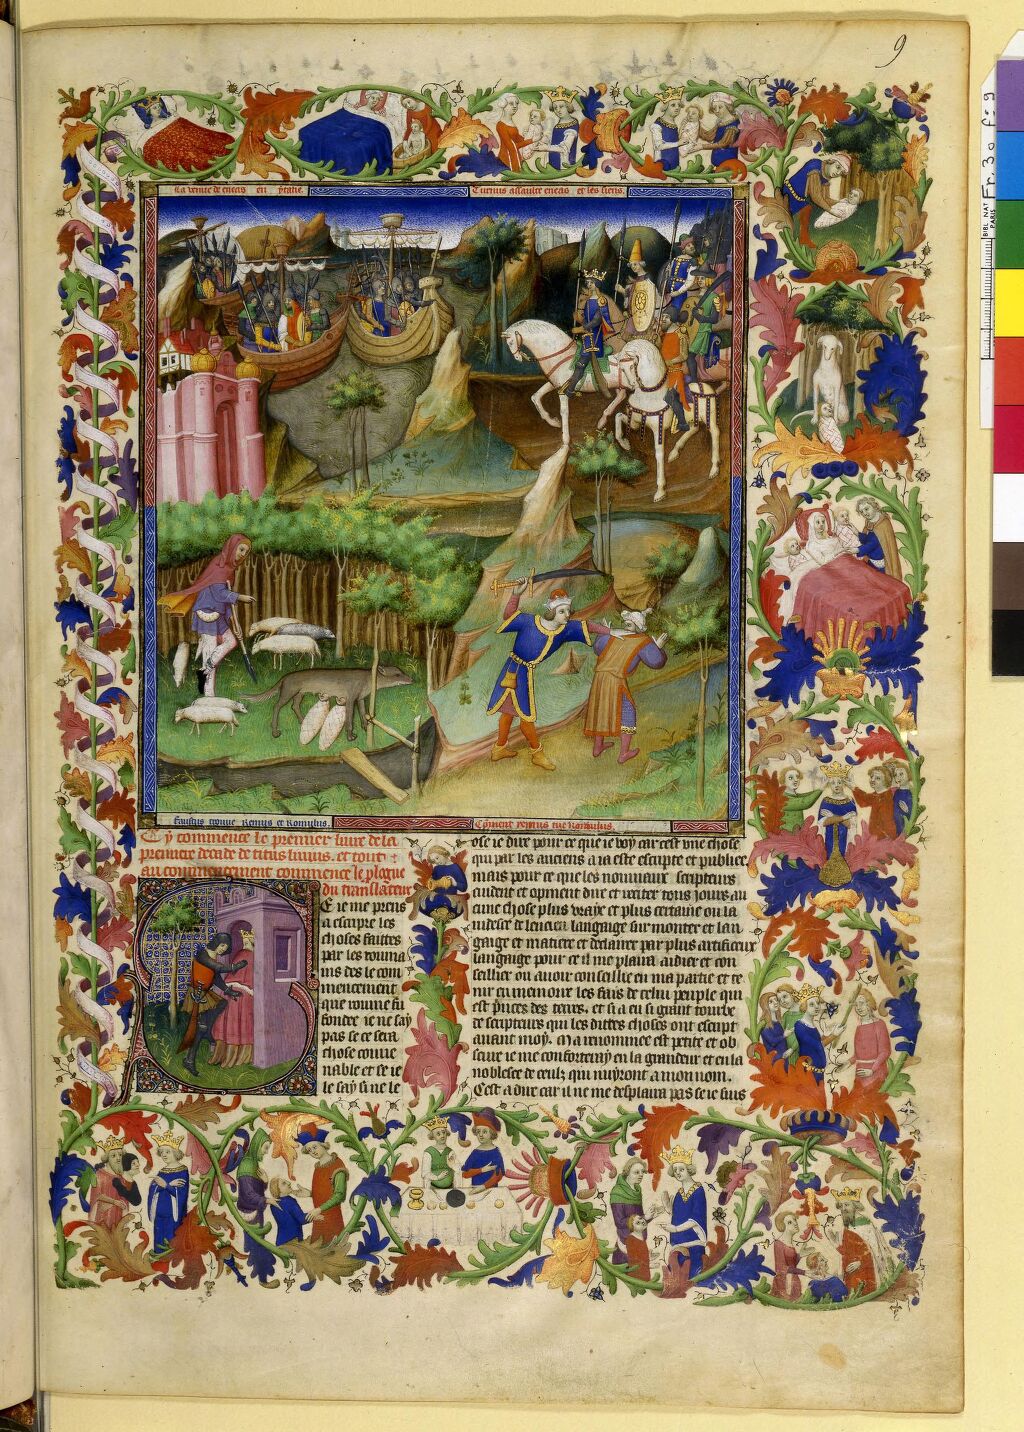 9
La venue de eneas en ytalie.
Turnus assault eneas et les siens.
Faustus trouve Remus et Romulus.
Coment remus tue Romulus.
Cy commence le premier livre de la
premiere decade de titus livius. et tout
au commencement commence le prologue
du translateur
E ie me prens
a escripre les
choses faittes
par les romma
ins des le com
mencement
que romme fu
fondee ie ne say
pas se ce sera
chose conve
nable et se ie
le say si ne le
ose ie dire pour ce que ie voy car cest une chose
qui par les anciens a ia este escripte et publiee
mais pour ce que les nouviaux scripteurs
cuident et opinent dire et reciter tous iours au
cune chose plus vraye et plus certaine ou la
rudesce de lancien langaige surmonter et lan
gaige et matiere et declairer par plus artificieux
langaige pour ce il me plaira aidier et con
seillier ou avoir conseillie en ma partie et te
nir en memoire les fais de celui peuple qui
est princes des terres. et si a eu si grant tourbe
de scripteurs qui les dittes choses ont escript
avant moy. Ma renommee est petite et ob
scure ie me conforteray en la grandeur et en la
noblesce de ceulz qui nuyront a mon nom.
Cest a dire car il ne me desplaira pas se ie suis
BIBL. NAT
PARIS
Fr. 30 f. 9